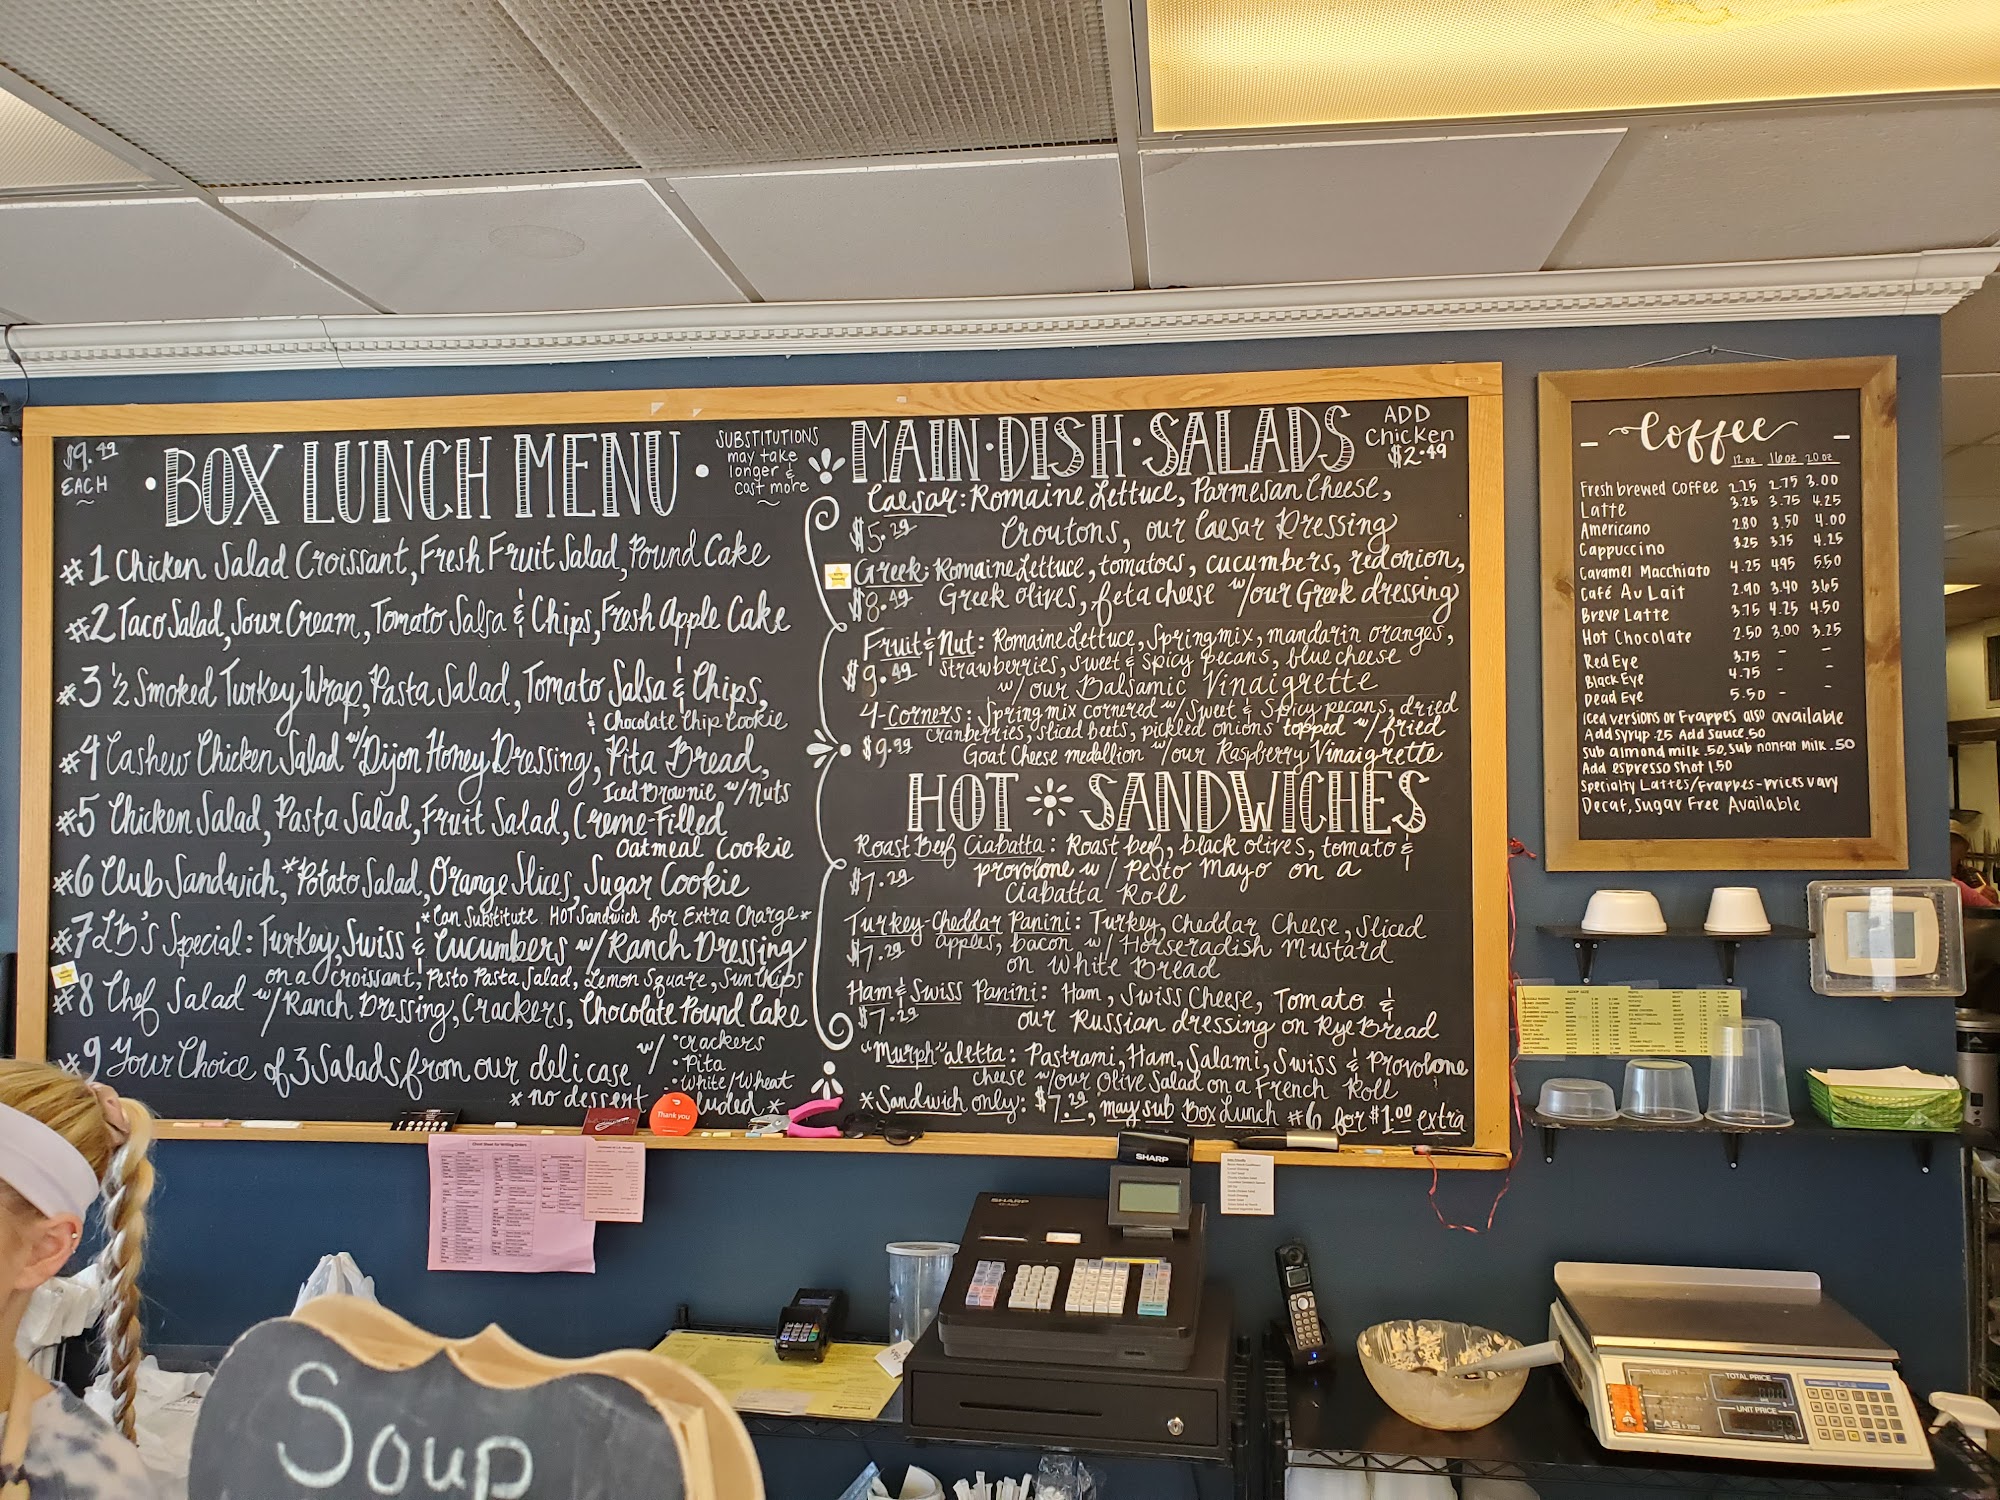 $9.49
EACH
BOX LUNCH MENU
SUBSTITUTIONS
may take
longer &
cost more
#1 Chicken Salad Croissant, Fresh Fruit Salad, Pound Cake
#2 Taco Salad, Sour Cream, Tomato Salsa & Chips, Fresh Apple Cake
#3 ½ Smoked Turkey Wrap, Pasta Salad, Tomato Salsa & Chips,
& Chocolate Chip Cookie
#4 Cashew Chicken Salad w/Dijon Honey Dressing, Pita Bread,
Iced Brownie w/Nuts
#5 Chicken Salad, Pasta Salad, Fruit Salad, Creme-Filled
Oatmeal Cookie
#6 Club Sandwich, *Potato Salad, Orange Slices, Sugar Cookie
*Can Substitute HOT Sandwich for Extra Charge*
#7 LB's Special: Turkey, Swiss & Cucumbers w/Ranch Dressing
on a Croissant, Pesto Pasta Salad, Lemon Square, Sun Chips
#8 Chef Salad w/Ranch Dressing, Crackers, Chocolate Pound Cake
#9 Your Choice of 3 Salads from our deli case w/
• Crackers
• Pita
• White/Wheat
* no dessert
MAIN • DISH • SALADS
ADD
Chicken
$2.49
Caesar: Romaine Lettuce, Parmesan Cheese,
$5.29 Croutons, our Caesar Dressing
Greek: Romaine Lettuce, tomatoes, cucumbers, red onion,
$8.49 Greek olives, feta cheese w/our Greek dressing
Fruit & Nut: Romaine Lettuce, Spring mix, mandarin oranges,
$9.49 strawberries, sweet & spicy pecans, blue cheese
w/ our Balsamic Vinaigrette
4-Corners: Spring mix cornered w/ Sweet & Spicy pecans, dried
cranberries, sliced beets, pickled onions topped w/ fried
$9.99 Goat Cheese medallion w/our Raspberry Vinaigrette
HOT SANDWICHES
Roast Beef Ciabatta: Roast beef, black olives, tomato &
$7.29 provolone w/ Pesto Mayo on a
Ciabatta Roll
Turkey-Cheddar Panini: Turkey, Cheddar Cheese, Sliced
$7.29 apples, bacon w/ Horseradish Mustard
on White Bread
Ham & Swiss Panini: Ham, Swiss Cheese, Tomato &
$7.29 our Russian dressing on Rye Bread
"Murph"aletta: Pastrami, Ham, Salami, Swiss & Provolone
cheese w/our Olive Salad on a French Roll
*Sandwich only: $7.29, may sub Box Lunch #6 for $1.00 extra
Coffee
12 oz 16 oz 20 oz
Fresh brewed coffee 2.25 2.75 3.00
Latte 3.25 3.75 4.25
Americano 2.80 3.50 4.00
Cappuccino 3.25 3.75 4.25
Caramel Macchiato 4.25 4.95 5.50
Café Au Lait 2.90 3.40 3.65
Breve Latte 3.75 4.25 4.50
Hot Chocolate 2.50 3.00 3.25
Red Eye 3.75 - -
Black Eye 4.75 - -
Dead Eye 5.50 - -
Iced versions or Frappes also available
Add syrup .25 Add Sauce .50
Sub almond milk .50, Sub nonfat milk .50
Add espresso shot 1.50
Specialty Lattes/Frappes-prices vary
Decaf, Sugar Free Available
Thank you
SHARP
SHARP
TOTAL PRICE
UNIT PRICE
CAS
Soup